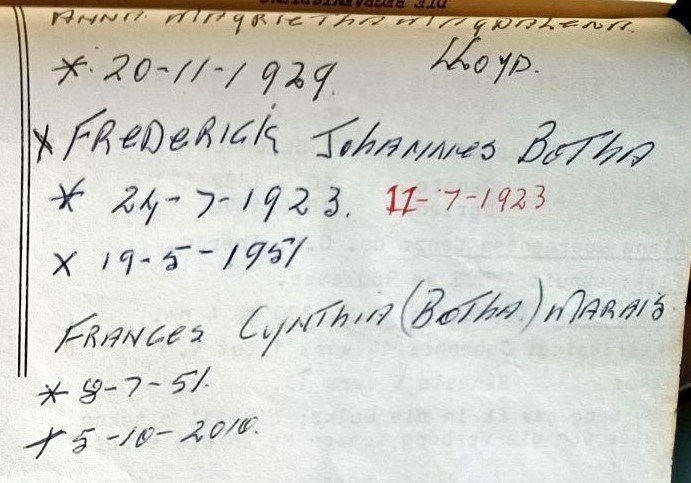 ANNA MAGRIETHA MAGDALENA
LLOYD.
* 20-11-1929.
X FREDERICK JOHANNES BOTHA
* 24-7-1923. 11-7-1923
X 19-5-1951
FRANCES CYNTHIA (BOTHA) MARAIS.
* 8-7-51.
† 5-10-2010.